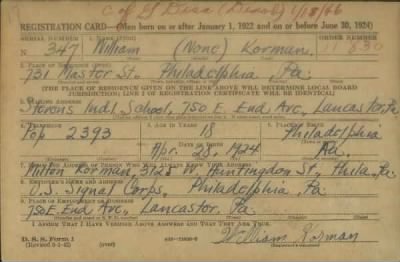 C of G Disc (Disab) 1/18/46
REGISTRATION CARD—(Men born on or after January 1, 1922 and on or before June 30, 1924)
SERIAL NUMBER 1. NAME (Print) ORDER NUMBER
N 347 William (None) Korman. 11830
2. PLACE OF RESIDENCE (Print)
731 Master St., Philadelphia, Pa.
(THE PLACE OF RESIDENCE GIVEN ON THE LINE ABOVE WILL DETERMINE LOCAL BOARD
JURISDICTION; LINE 2 OF REGISTRATION CERTIFICATE WILL BE IDENTICAL)
3. MAILING ADDRESS
Stevens Ind'l School, 750 E. End Ave, Lancaster, Pa
4. TELEPHONE 5. AGE IN YEARS 6. PLACE OF BIRTH
Pop 2393 18 Philadelphia
DATE OF BIRTH
Apr. 28, 1924 Pa.
7. NAME AND ADDRESS OF PERSON WHO WILL ALWAYS KNOW YOUR ADDRESS
Milton Korman, 3128 W. Huntingdon St., Phila, Pa.
8. EMPLOYER'S NAME AND ADDRESS
U.S. Signal Corps, Philadelphia, Pa.
9. PLACE OF EMPLOYMENT OR BUSINESS
750 E. End Ave, Lancaster, Pa.
I AFFIRM THAT I HAVE VERIFIED ABOVE ANSWERS AND THAT THEY ARE TRUE.
D. S. S. Form 1 (over) William Korman